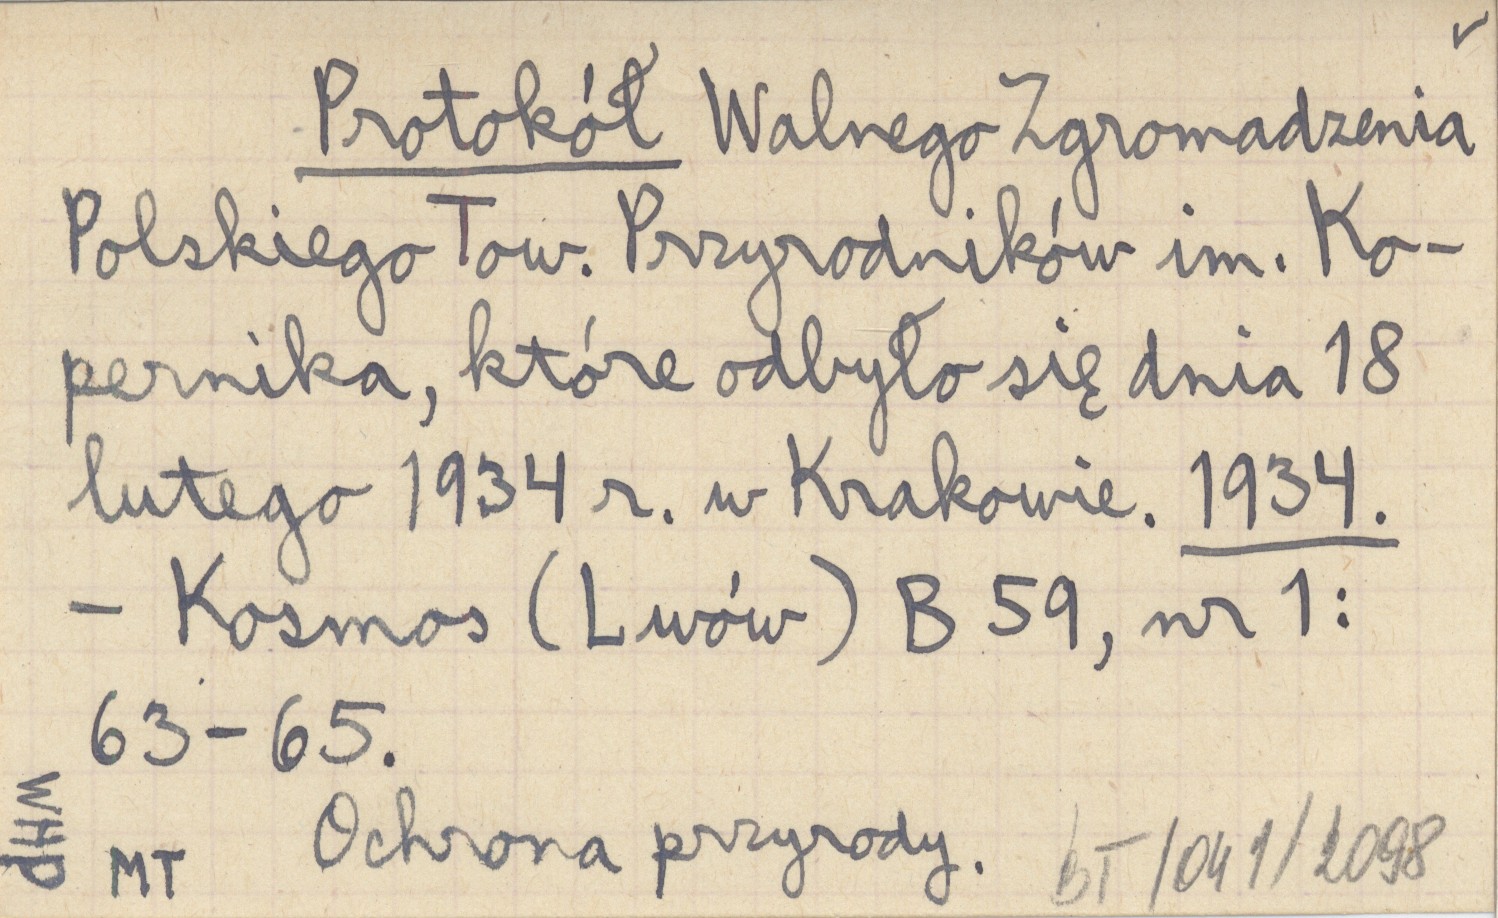 Protokół Walnego Zgromadzenia
Polskiego Tow. Przyrodników im. Ko-
pernika, które odbyło się dnia 18
lutego 1934 r. w Krakowie. 1934.
– Kosmos (Lwów) B 59, nr 1:
63–65.
Ochrona przyrody.
WHP
MT
bT/041/2098